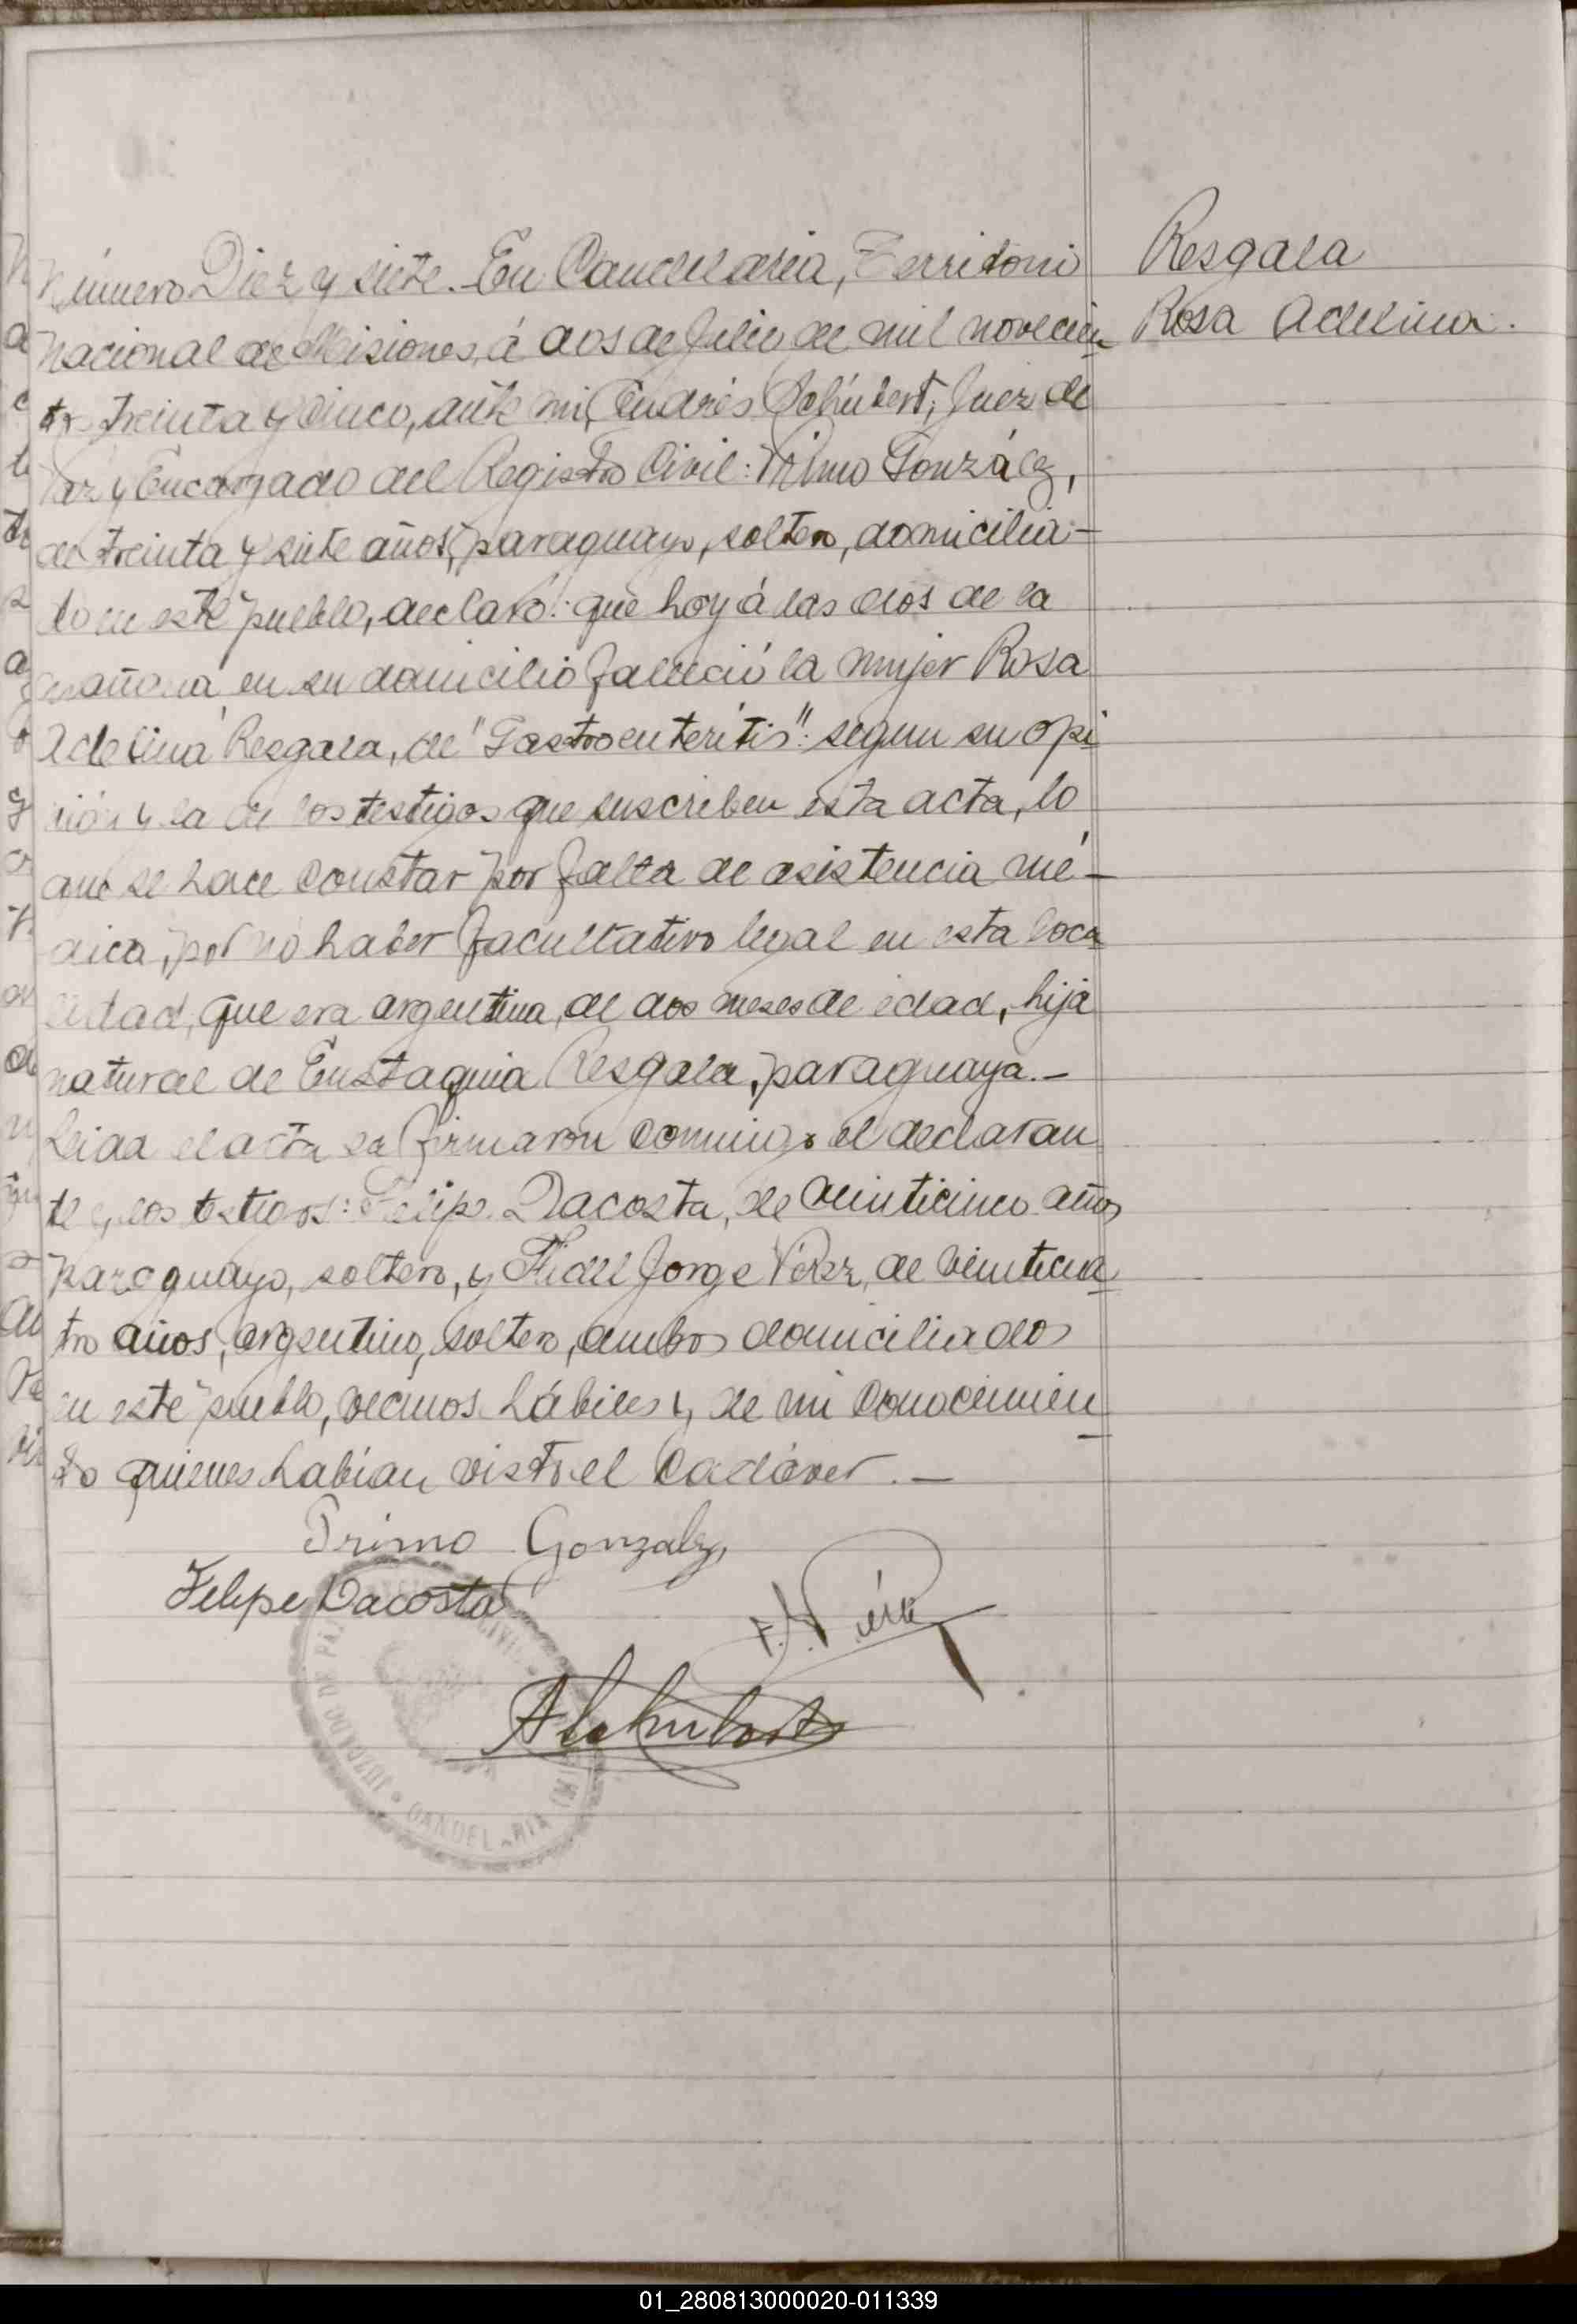 Número Diez y siete.- En Candelaria, Territorio
Nacional de Misiones, á dos de Julio de mil novecien
tos treinta y cinco, ante mi, Andrés Schúbert, Juez de
Paz y Encargado del Registro Civil: Primo González,
de treinta y siete años, paraguayo, soltero, domicilia-
do en este pueblo, declaró: que hoy á las dos de la
mañana, en su domicilio falleció la mujer Rosa
Adelina Resgala, de "Gastroenterítis": segun su opi
nión y la de los testigos que suscriben esta acta, lo
que se hace constar por falta de asistencia mé-
dica, por no haber facultativo legal en esta loca
lidad, que era argentina, de dos meses de edad, hija
natural de Eustaquia Resgala, paraguaya.-
Leida el acta la firmaron conmigo el declaran
te y los testigos: Felipe Dacosta, de veinticinco años
paraguayo, soltero, y Fidel Jorge Vérez, de veinticua
tro años, argentino, soltero, ambos domiciliados
en este pueblo, vecinos hábiles y de mi conocimien
to quienes habían visto el cadáver.-
Resgala
Rosa Adelina.
Primo Gonzalez,
Felipe Dacosta
ASchubert
JUZGADO DE PAZ
CANDELARIA
01_280813000020-011339